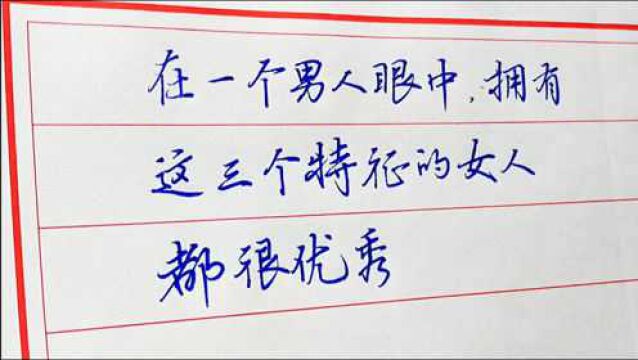 在一个男人眼中,拥有
这三个特征的女人
都很优秀